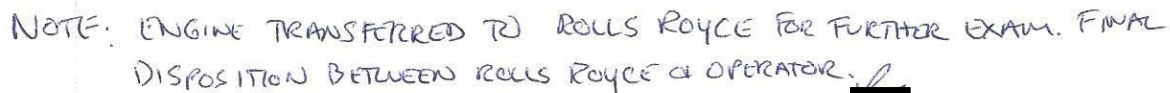 NOTE: ENGINE TRANSFERRED TO ROLLS ROYCE FOR FURTHER EXAM. FINAL
DISPOSITION BETWEEN ROLLS ROYCE & OPERATOR.